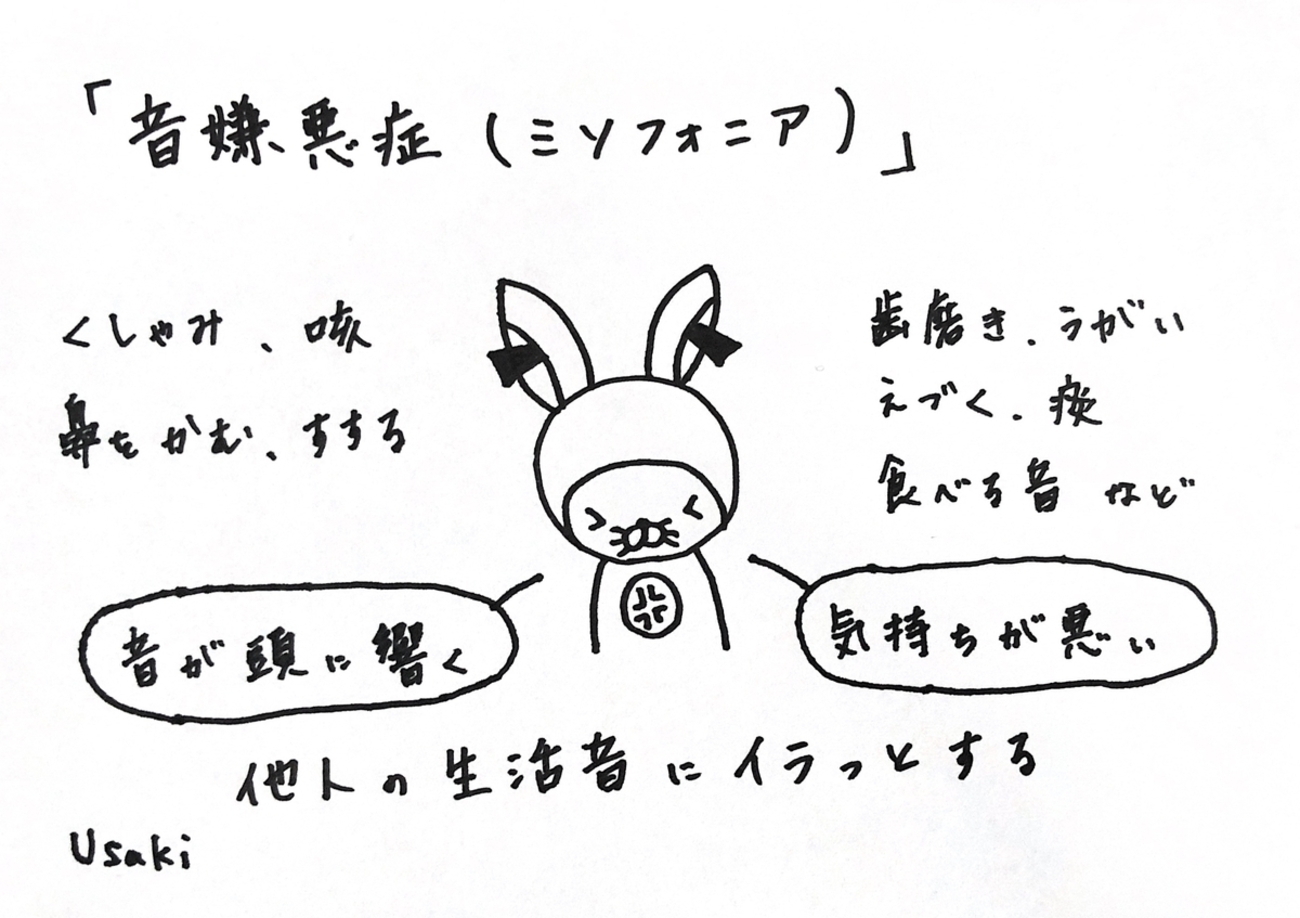 「音嫌悪症(ミソフォニア)」
くしゃみ、咳
鼻をかむ、すする
歯磨き、うがい
えづく、痰
食べる音 など
音が頭に響く
気持ちが悪い
他人の生活音にイラっとする
Usaki